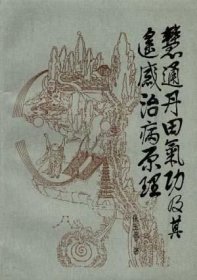 慧通丹田氣功及其
遥感治病原理